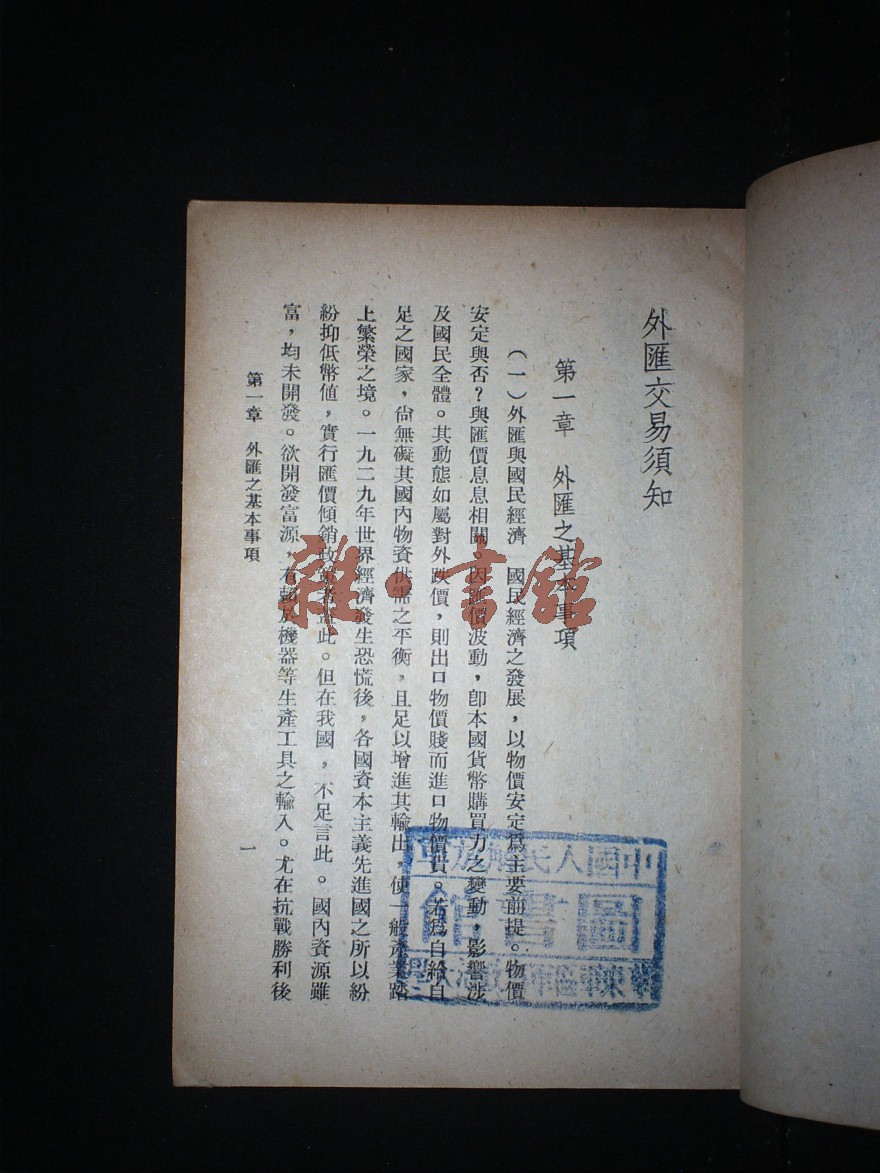 外匯交易須知
第一章　外匯之基本事項
（一）外匯與國民經濟　國民經濟之發展，以物價安定爲主要前提。物價
安定與否？與匯價息息相關。因匯價波動，卽本國貨幣購買力之變動，影響涉
及國民全體。其動態如屬對外跌價，則出口物價賤而進口物價貴。若爲自給自
足之國家，尙無礙其國內物資供需之平衡，且足以增進其輸出，使一般產業踏
上繁榮之境。一九二九年世界經濟發生恐慌後，各國資本主義先進國之所以紛
紛抑低幣値，實行匯價傾銷政策者蓋此。但在我國，不足言此。國內資源雖
富，均未開發。欲開發富源，有賴於機器等生產工具之輸入。尤在抗戰勝利後
第一章　外匯之基本事項
一
雜·書館
中國人民解放軍
圖書館